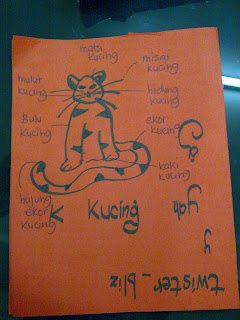 mata
kucing
misai
kucing
mulut
kucing
hidung
kucing
Bulu
kucing
ekor
kucing
kaki
kucing
hujung
ekor
kucing
K Kucing
yah
twister_bliz